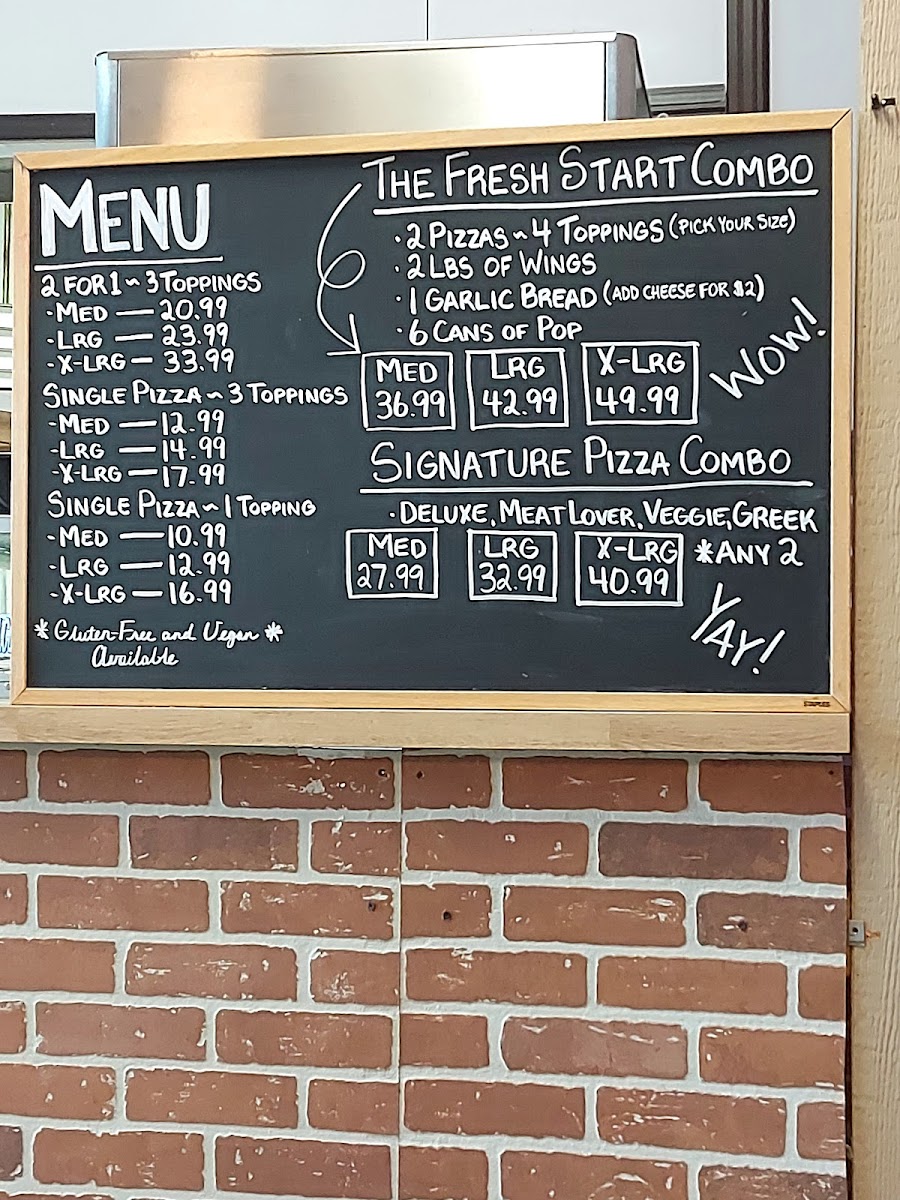 MENU
2 FOR 1 ~ 3 TOPPINGS
- MED — 20.99
- LRG — 23.99
- X-LRG — 33.99
SINGLE PIZZA ~ 3 TOPPINGS
- MED — 12.99
- LRG — 14.99
- X-LRG — 17.99
SINGLE PIZZA ~ 1 TOPPING
- MED — 10.99
- LRG — 12.99
- X-LRG — 16.99
* Gluten-Free and Vegan *
Available
THE FRESH START COMBO
· 2 PIZZAS ~ 4 TOPPINGS (PICK YOUR SIZE)
· 2 LBS OF WINGS
· 1 GARLIC BREAD (ADD CHEESE FOR $2)
· 6 CANS OF POP
MED LRG X-LRG
36.99 42.99 49.99
WOW!
SIGNATURE PIZZA COMBO
· DELUXE, MEAT LOVER, VEGGIE, GREEK
*ANY 2
MED LRG X-LRG
27.99 32.99 40.99
YAY!
STAPLES